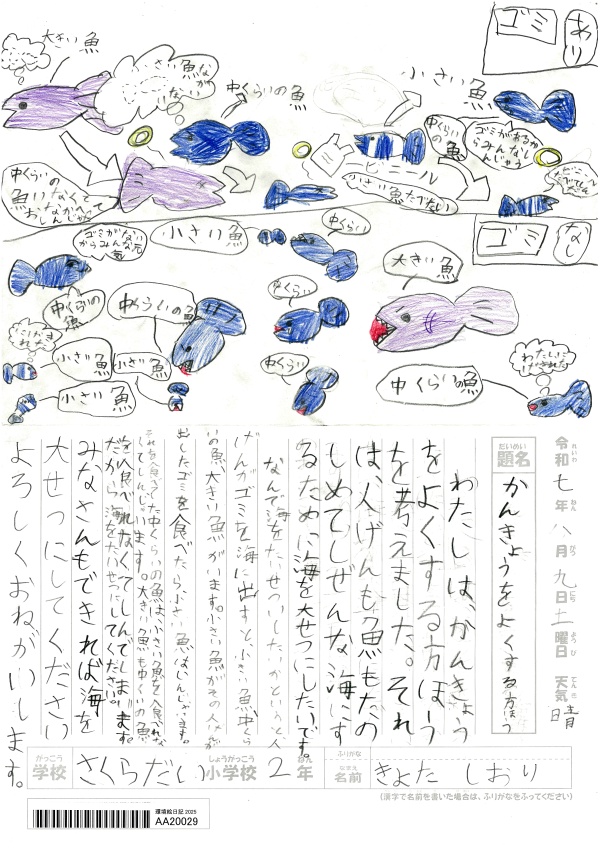 ゴミ
あり
大きい魚
中くらいの魚
小さい魚
中くらいの魚
ゴミがあるからみんなしんじゃう
ビニール
小さい魚
中くらいの
魚がいなくて
ゴミ
なし
ゴミがない
からみんな元
気
小さい魚
中くらい
大きい魚
中くらいの
魚
中くらいの魚
中くらい
小さい魚
小さい魚
小さい魚
中くらい
中くらいの魚
わたしに
令和 七年 八月 九日 土曜日 天気 晴
れいわ ねん がつ にち ようび てんき
だいめい
題名
かんきょうをよくする方ほう
わたしは、かんきょう
をよくする方ほう
を考えました。それ
は、人げんも魚もたの
しめてしぜんな海にす
るために海を大せつにしたいです。
なんで海をたいせつにしたいかというと、人
げんがゴミを海に出すと、小さい魚、中くら
いの魚、大きい魚がいます。小さい魚がその人が
出したゴミを食べたら、小さい魚はしんじゃいます。
それを食べてた中くらいの魚は、小さい魚を食べれな
くてしんじゃいます。大きい魚も中くらいの魚
が食べれなくてしんでしまいます。
だから海をたいせつにしてください。
みなさんもできれば海を
大せつにしてください
よろしくおねがいします。
がっこう
学校
さくらだい
しょうがっこう
小学校
2
ねん
年
ふりがな
なまえ
名前
きよた しおり
(漢字で名前を書いた場合は、ふりがなをふってください)
環境絵日記 2025
AA20029